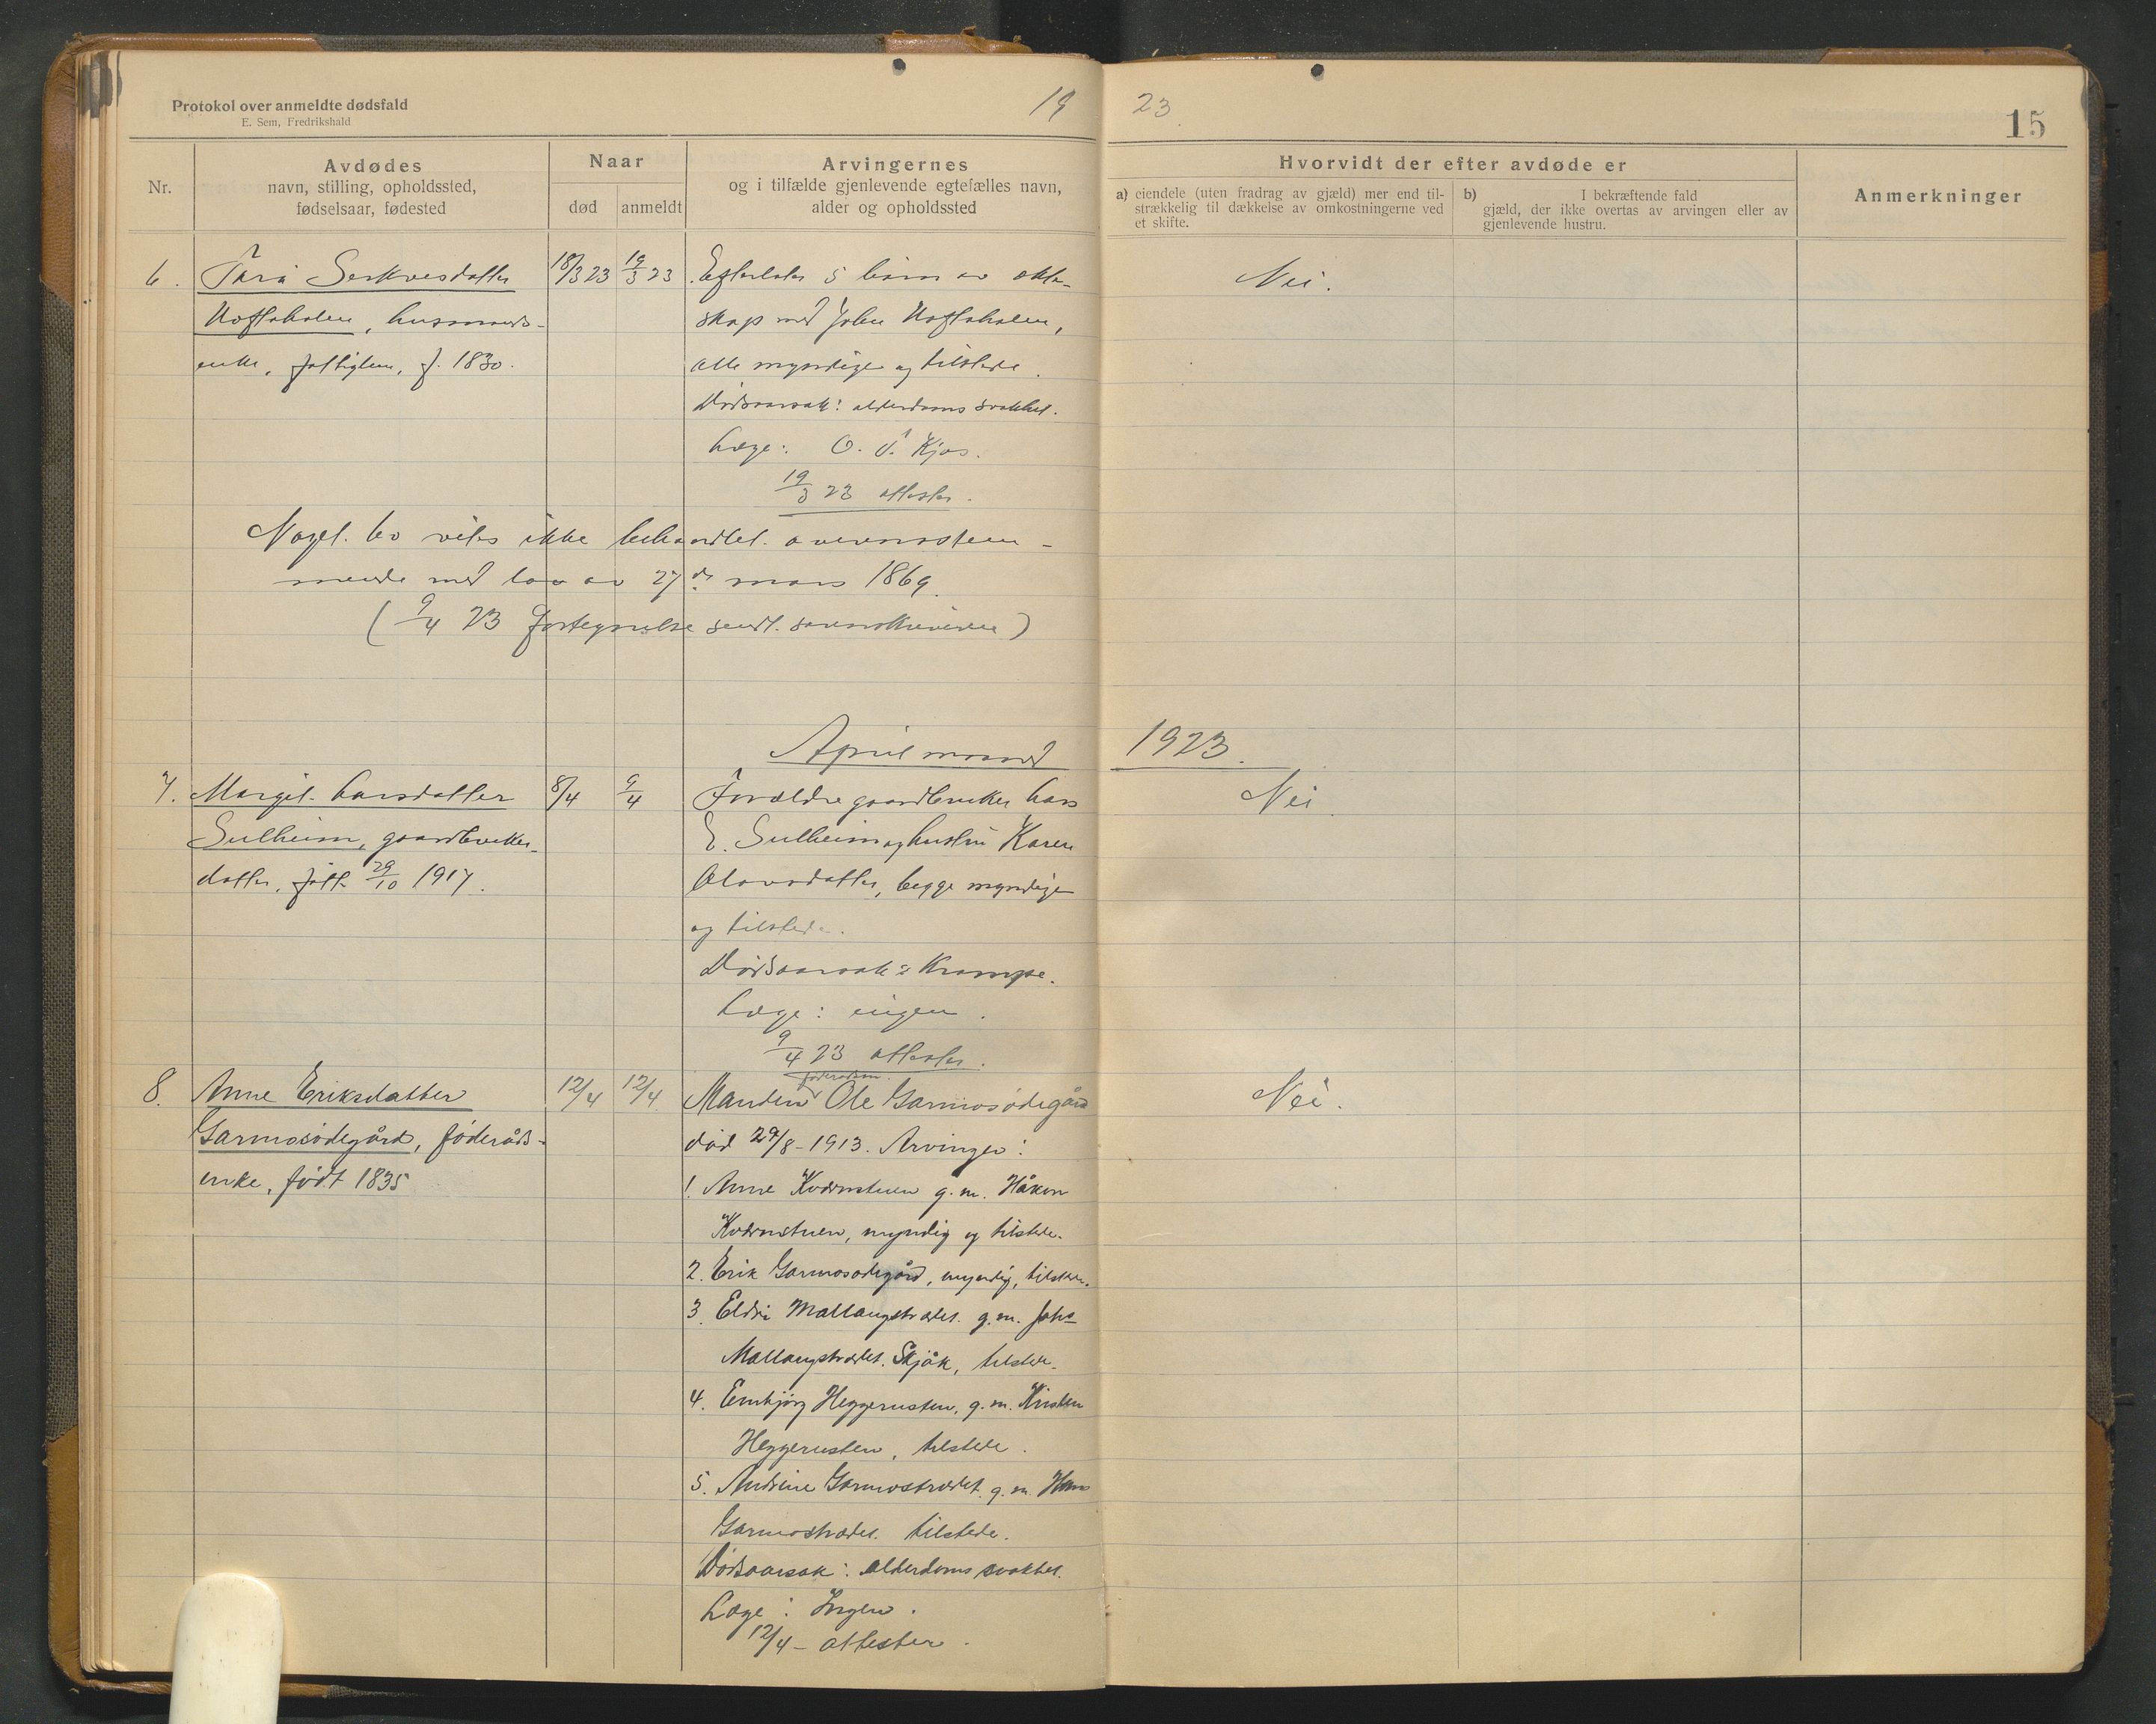 Protokol over anmeldte dødsfald
E. Sem, Fredrikshald
19 23.
15
Nr.
Avdødes
navn, stilling, opholdssted,
fødselsaar, fødested
Naar
død
anmeldt
Arvingernes
og i tilfælde gjenlevende egtefælles navn,
alder og opholdssted
Hvorvidt der efter avdøde er
a) eiendele (uten fradrag av gjæld) mer end til-
strækkelig til dækkelse av omkostningerne ved
et skifte.
b) I bekræftende fald
gjæld, der ikke overtas av arvingen eller av
gjenlevende hustru.
Anmerkninger
6. 18/3 23 19/3 23 Efterlater 5 barn av ekte- Nei.
husmands- skap med John
enke, fattiglem, f. 1830. alle myndige og tilstede.
Dødsaarsak: alderdoms svakhet.
Læge: O. Kjos.
19/3 23 attester.
Noget bo vites ikke behandlet overensstem-
mende med lov av 27de mars 1869.
(9/4 23 fortegnelse sendt sorenskriveren)
April maaned 1923.
7. Margit Larsdatter 8/4 9/4 Forældre gaardbruker Lars Nei.
Sulheim, gaardbruker- E. Sulheim og hustru Karen
datter, født 29/10 1917. Olavsdatter, begge myndige
og tilstede.
Dødsaarsak: Krampe.
Læge: ingen.
9/4 23 attester.
føderådsm.
8. Anne Eriksdatter 12/4 12/4 Manden Ole Garmosødegård Nei.
Garmosødegård, føderåds- død 29/8-1913. Arvinger:
enke, født 1835
1. Anne Kvernstuen g.m. Håkon
Kvernstuen, myndig og tilstede.
2. Erik Garmosødegård, myndig, tilstede.
3. Eldri Mallangstrædet g.m. Johs
Mallangstrædet. Skjåk, tilstede.
4. Embjørg Heggerusten, g.m. Kristen
Heggerusten, tilstede.
5. Andrine Garmostrædet g.m. Hans
Garmostrædet tilstede.
Dødsaarsak: alderdoms svakhet.
Læge: Ingen.
12/4 - attester.